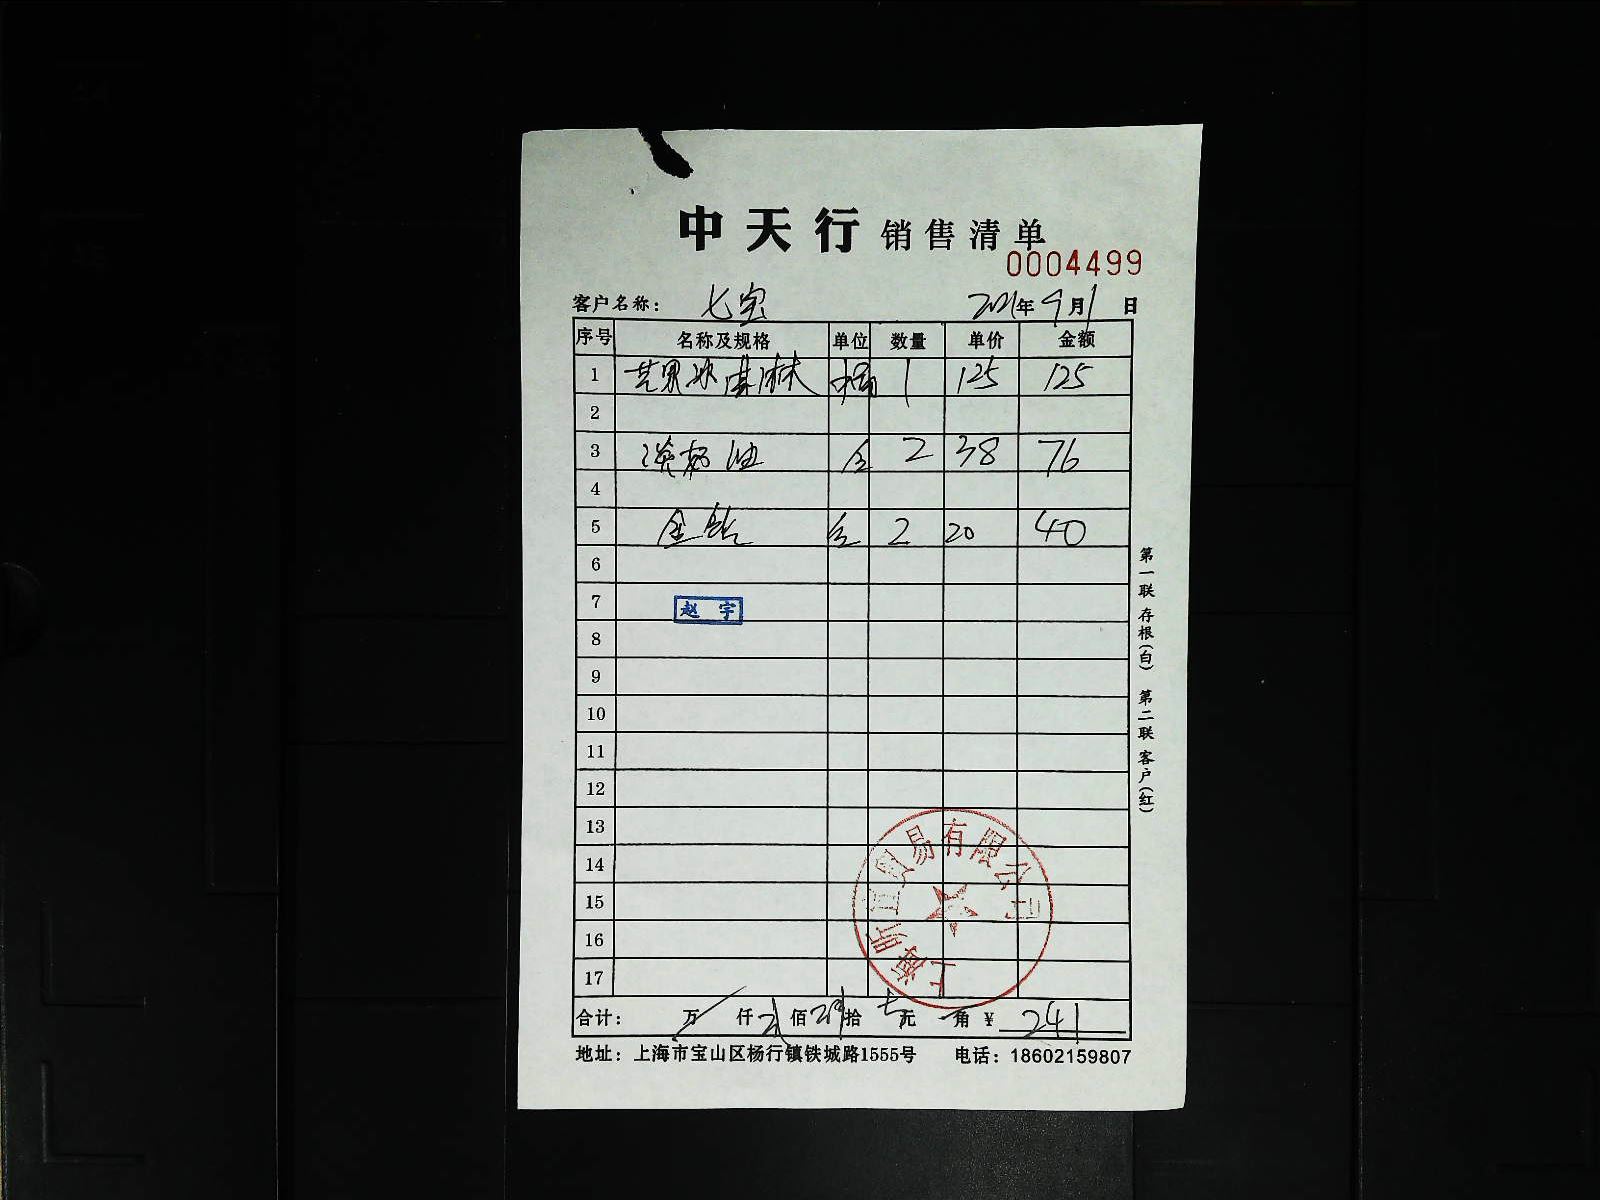 中天行 销售清单
0004499
客户名称： 七宝 2021年9月1日
序号 名称及规格 单位 数量 单价 金额
1 芒果冰淇淋 桶 1 125 125
2
3 淡奶油 合 2 38 76
4
5 金钻 合 2 20 40
6
7 赵宇
8
9
10
11
12
13
14
15
16
17
上海昕宜贸易有限公司
合计： 万 仟 贰佰 肆拾 元 角 ¥ 241
地址：上海市宝山区杨行镇铁城路1555号 电话：18602159807
第一联 存根（白） 第二联 客户（红）